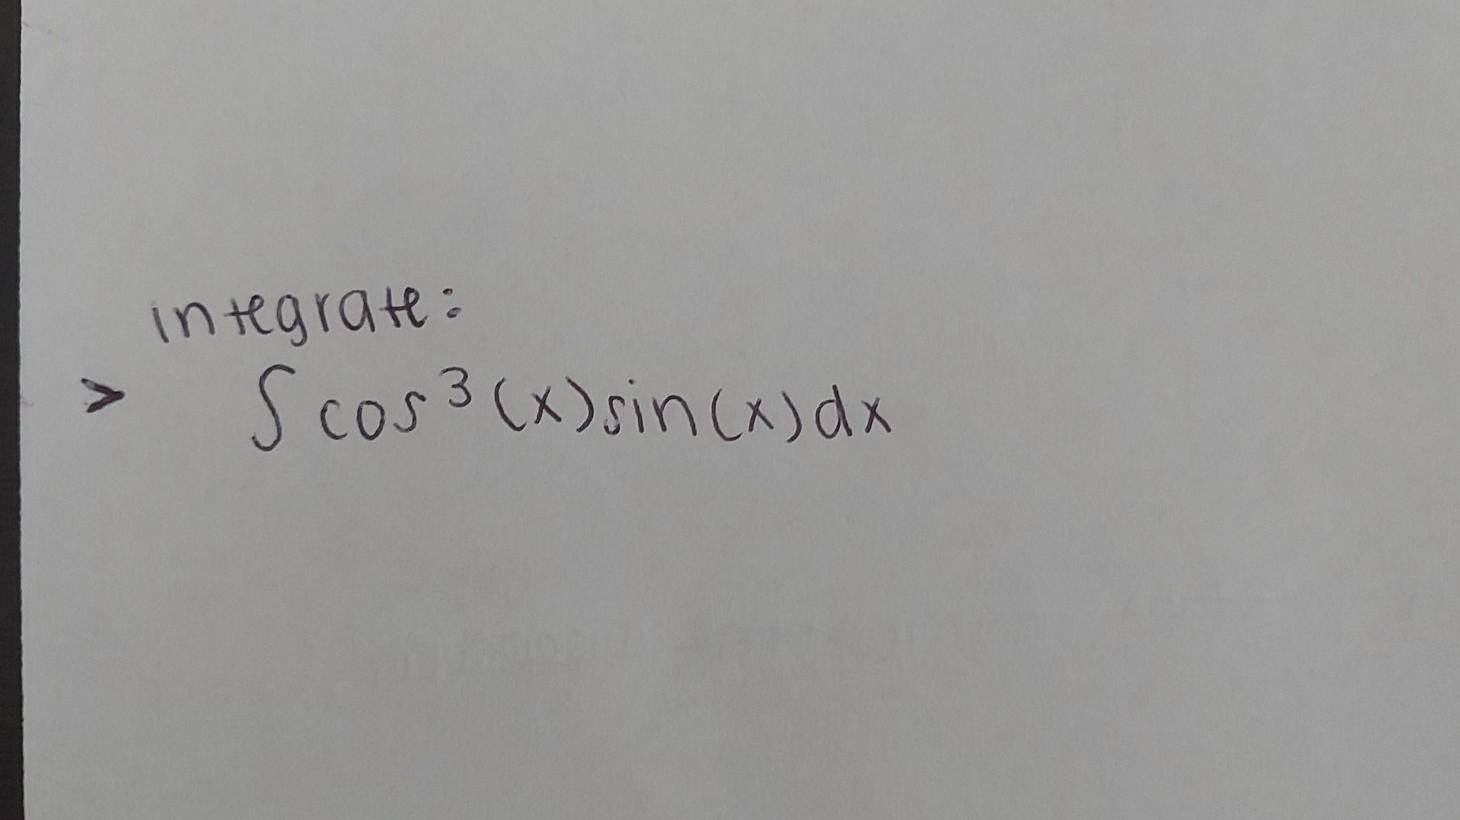 integrate:
> ∫ cos³(x)sin(x)dx